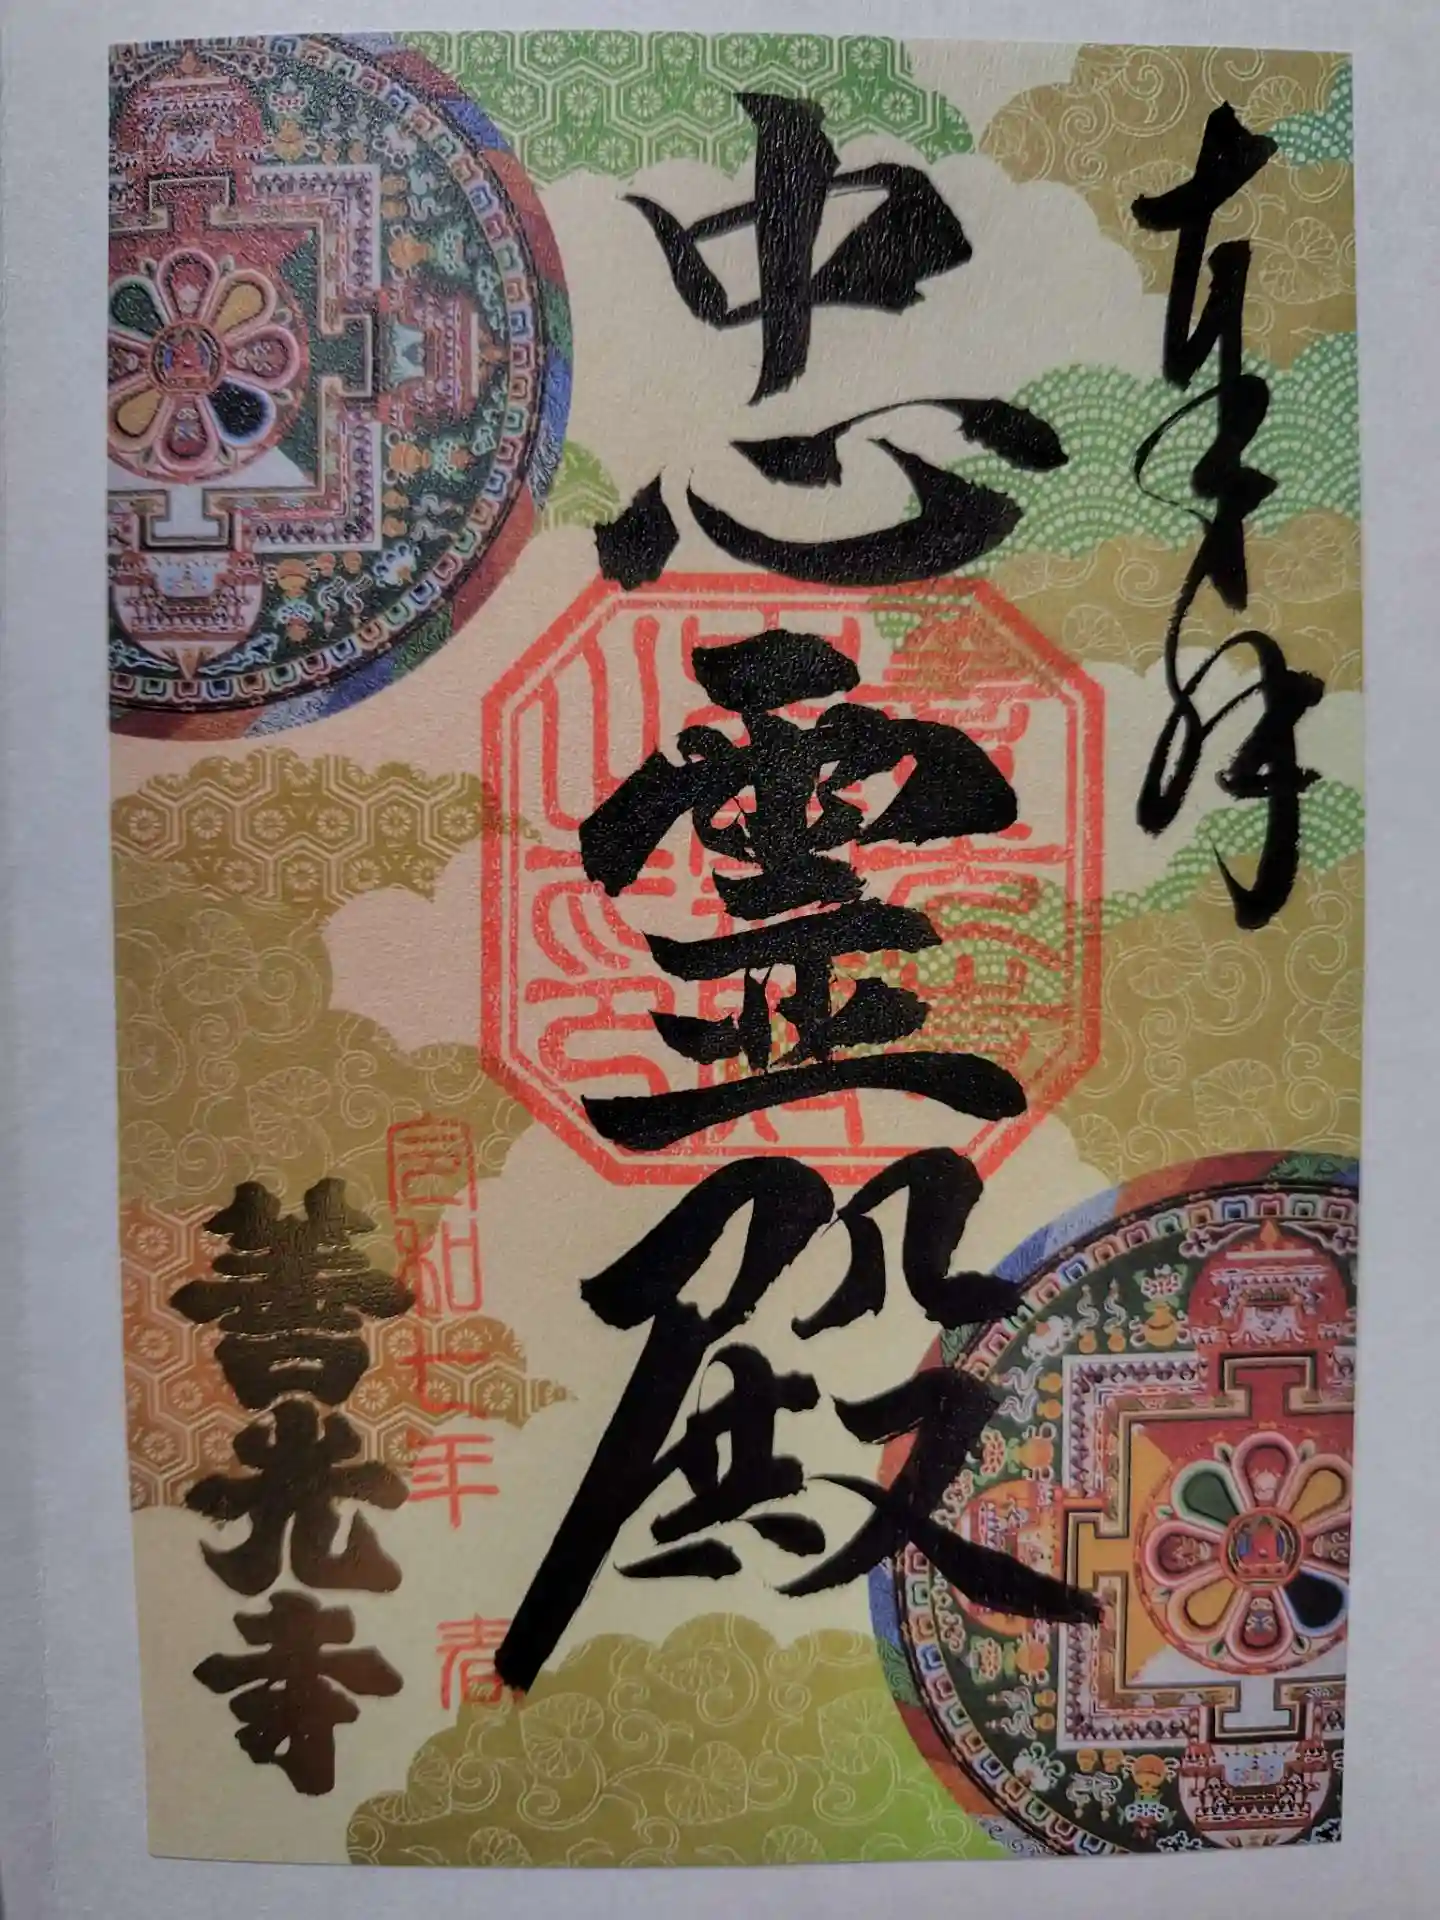 奉拝
忠霊殿
令和七年 春
善光寺